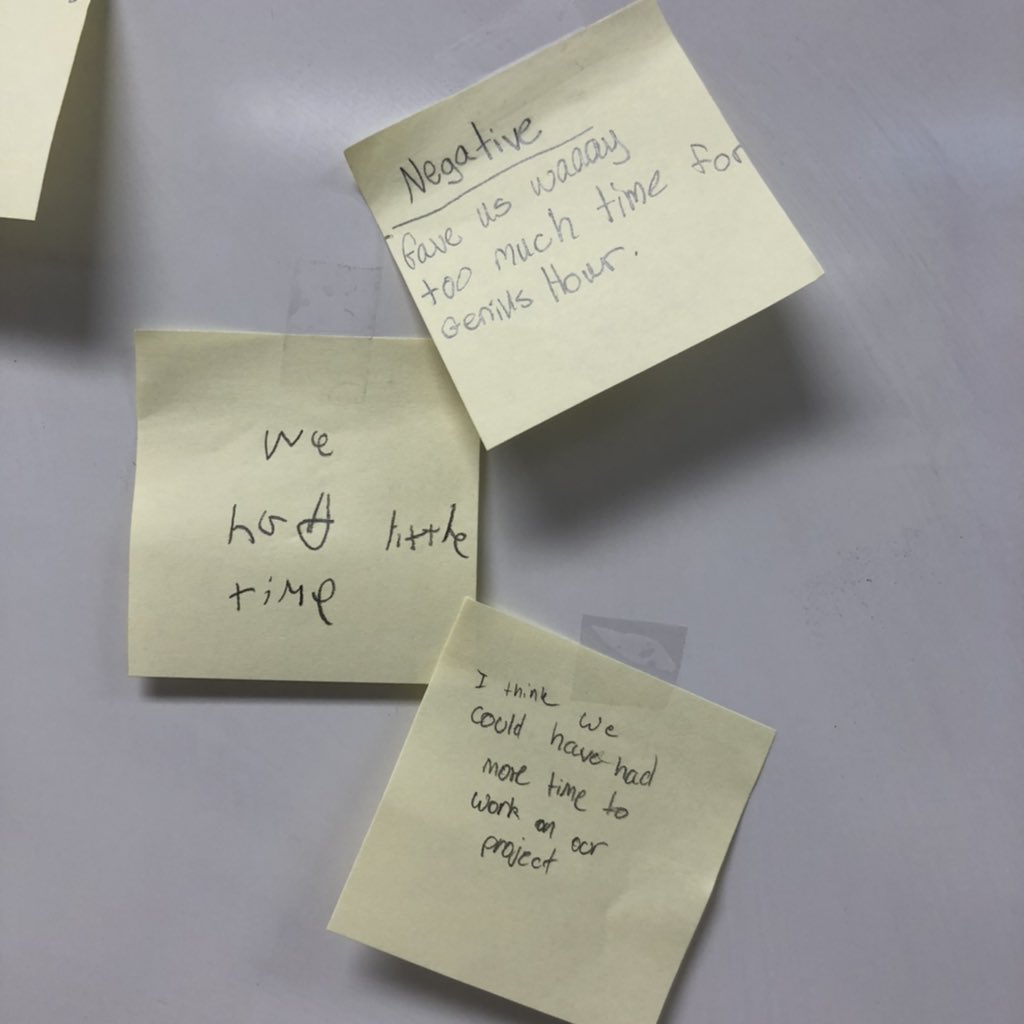 Negative
Gave us waaay
too much time for
Genius Hour.
we
had little
time
I think we
could have had
more time to
work on our
project